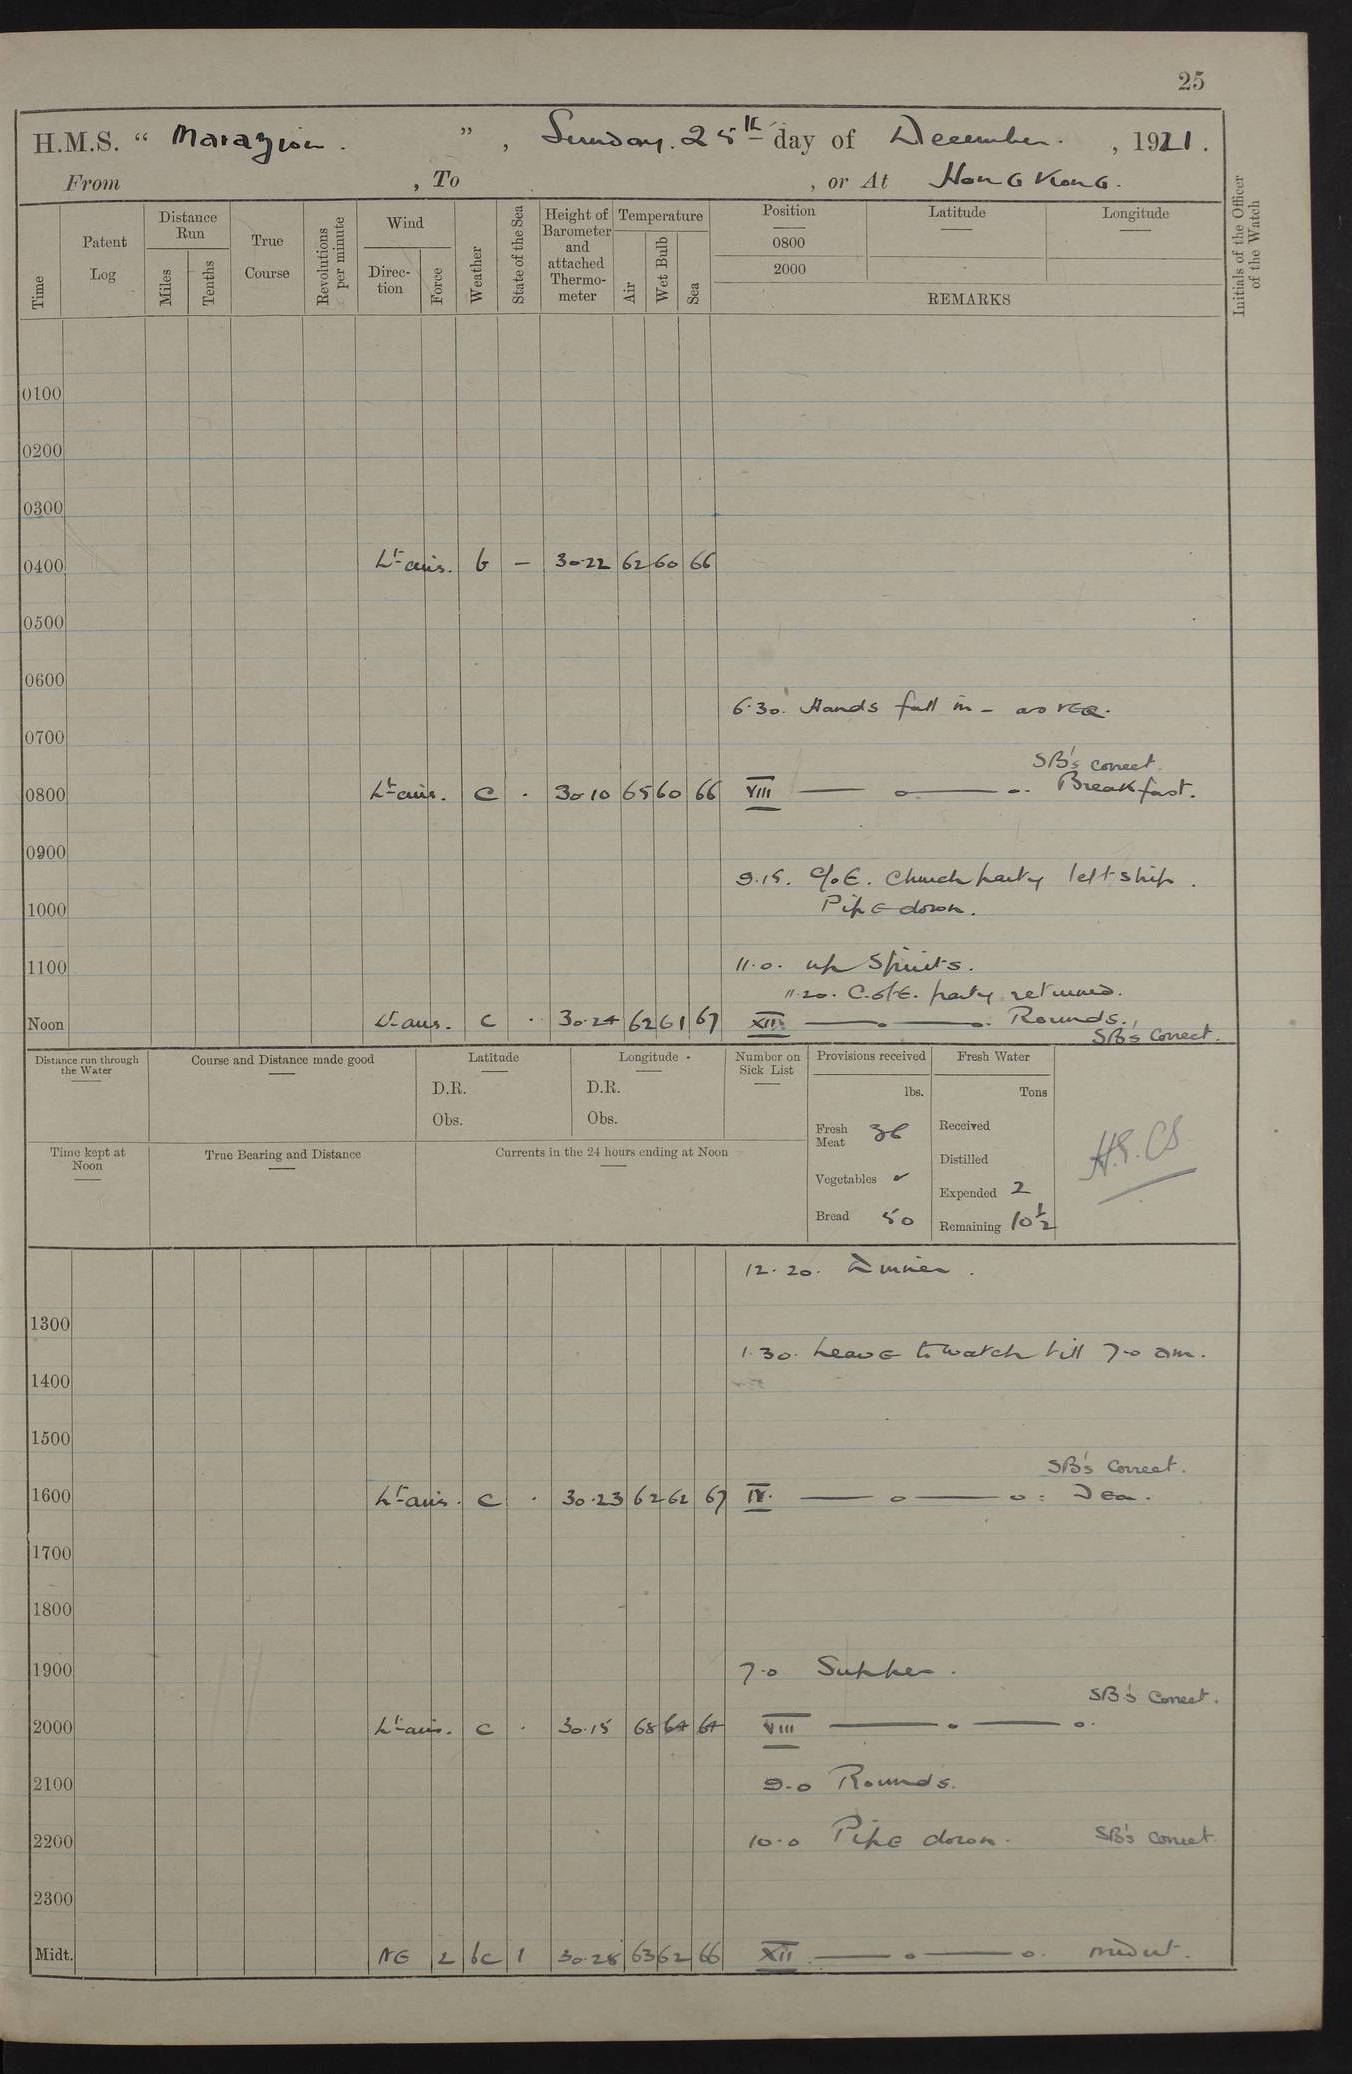 25
H.M.S. “ Marazion. ”, Sunday. 25th day of December. , 1921.
From , To , or At Hong Kong.
Time
Patent Log
Distance Run
Miles
Tenths
True Course
Revolutions per minute
Wind
Direction
Force
Weather
State of the Sea
Height of Barometer and attached Thermometer
Temperature
Air
Wet Bulb
Sea
Position
0800
2000
Latitude
Longitude
REMARKS
Initials of the Officer of the Watch
0100
0200
0300
0400 Lt airs. b – 30.22 62 60 66
0500
0600
6.30. Hands fall in – as req.
0700
SB's correct.
0800 Lt airs. c . 30.10 65 60 66 VIII Breakfast.
0900
9.15. C/o E. Church party left ship.
Pipe down.
1000
11.0. up Spirits.
1100
11.20. C. of E. party returned.
Noon Lt airs. c . 30.24 62 61 67 XII Rounds.
SB's Correct.
Distance run through the Water
Course and Distance made good
Latitude
D.R.
Obs.
Longitude
D.R.
Obs.
Number on Sick List
Provisions received
lbs.
Fresh Meat 36
Vegetables ✓
Bread 50
Fresh Water
Tons
Received
Distilled
Expended 2
Remaining 10½
Time kept at Noon
True Bearing and Distance
Currents in the 24 hours ending at Noon
12.20. Dinner.
1300
1.30. Leave to watch till 7.0 am.
1400
1500
SB's Correct.
1600 Lt airs. c . 30.23 62 62 67 IV.
1700
1800
1900 7.0 Supper.
SB's Correct.
2000 Lt airs. c . 30.15 68 64 64 VIII
2100 9.0 Rounds.
2200 10.0 Pipe down. SB's Correct
2300
Midt. NE 2 bc 1 30.28 63 62 66 XII